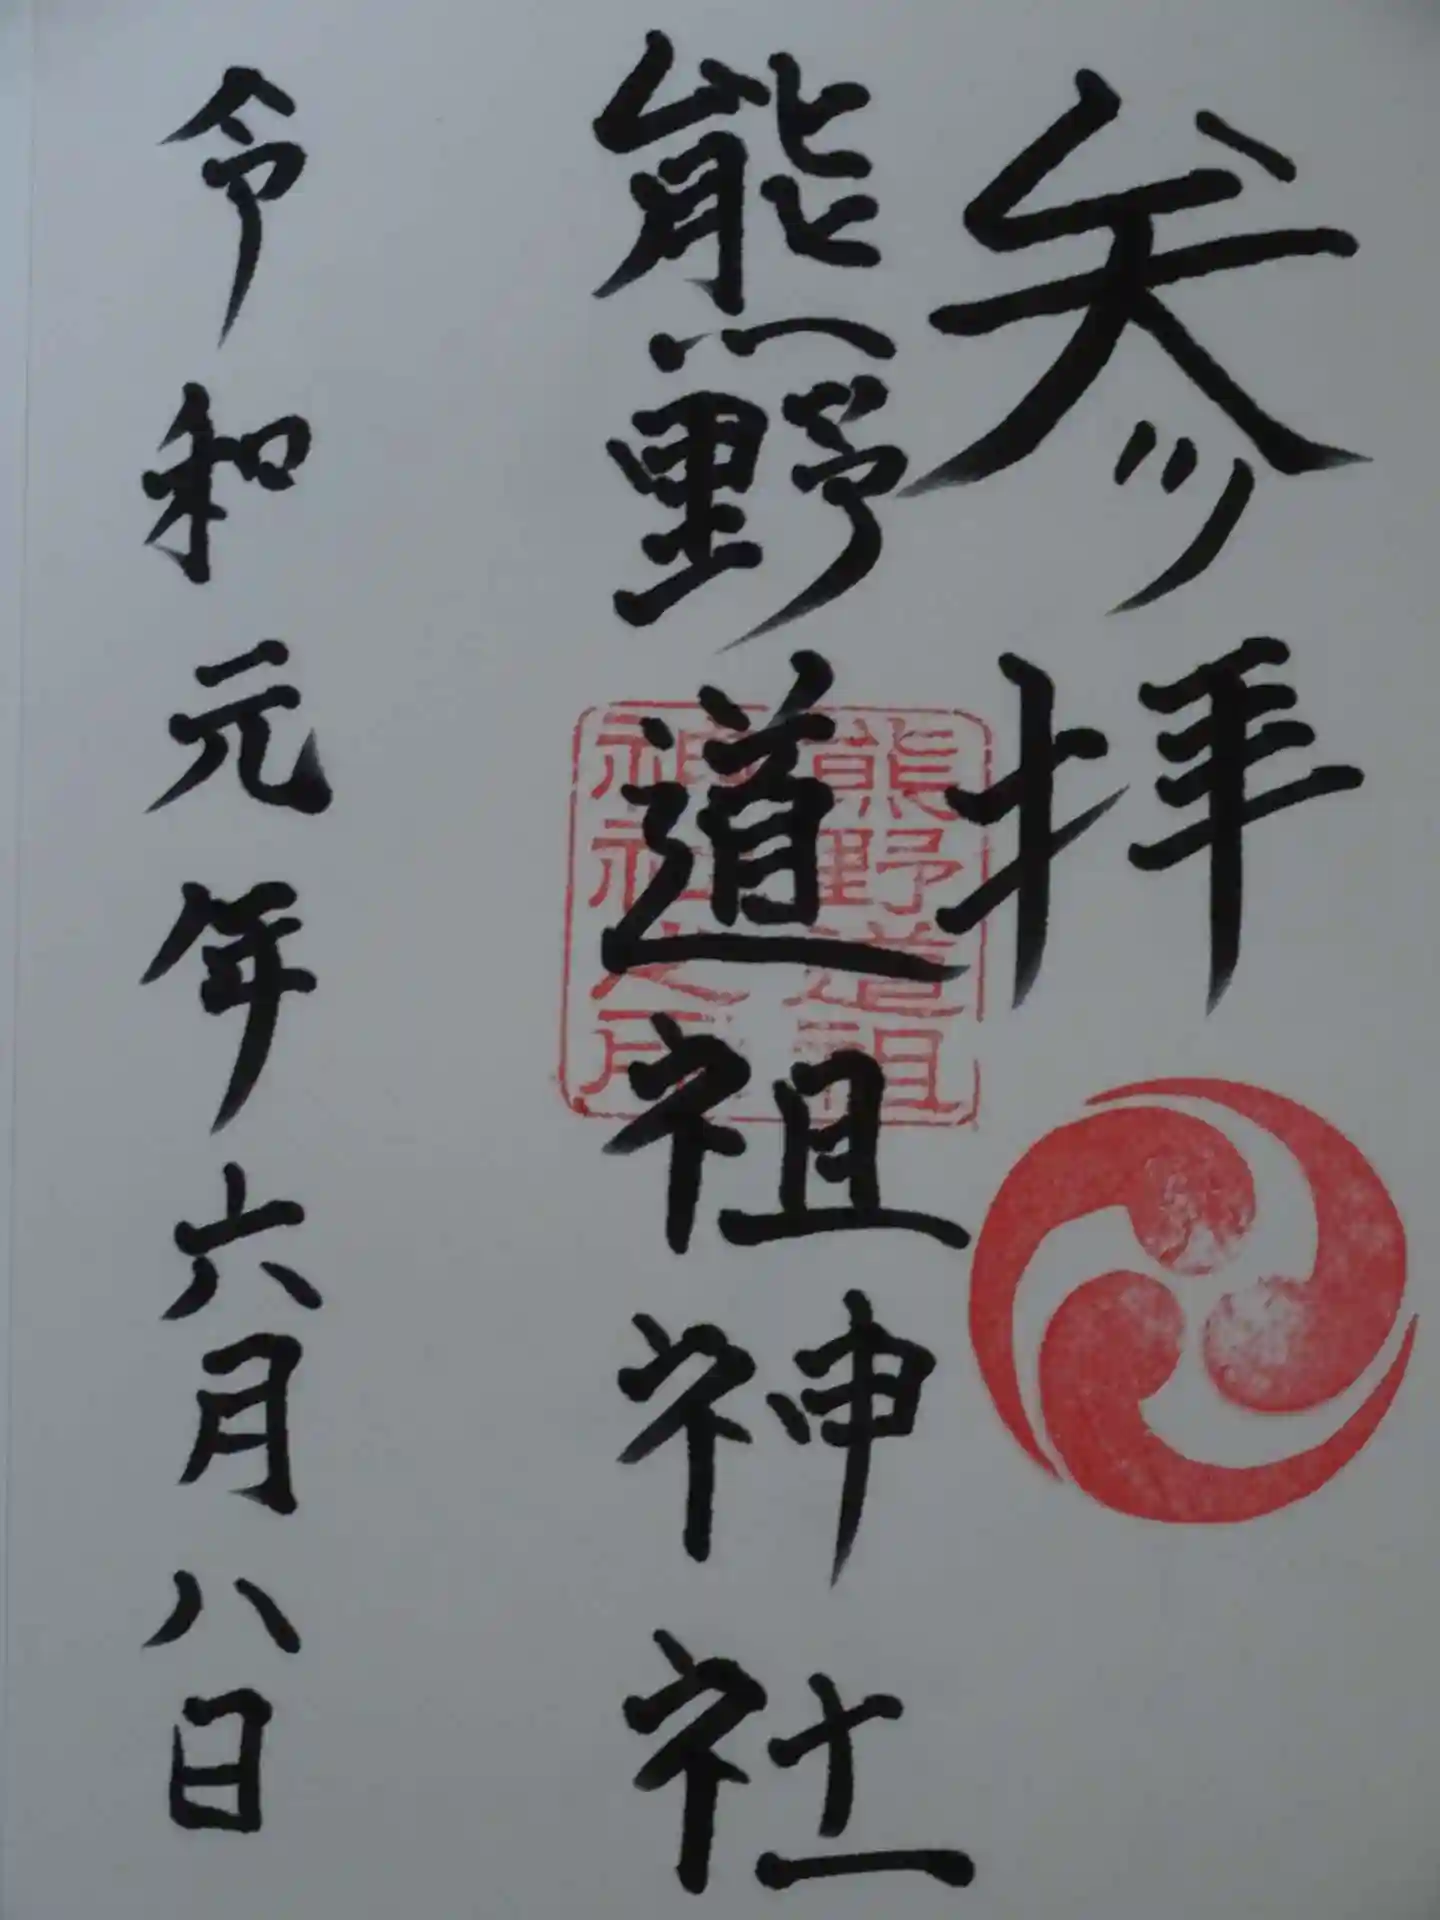 参拝
熊野道祖神社
熊野道祖
神社之印
令和元年六月八日